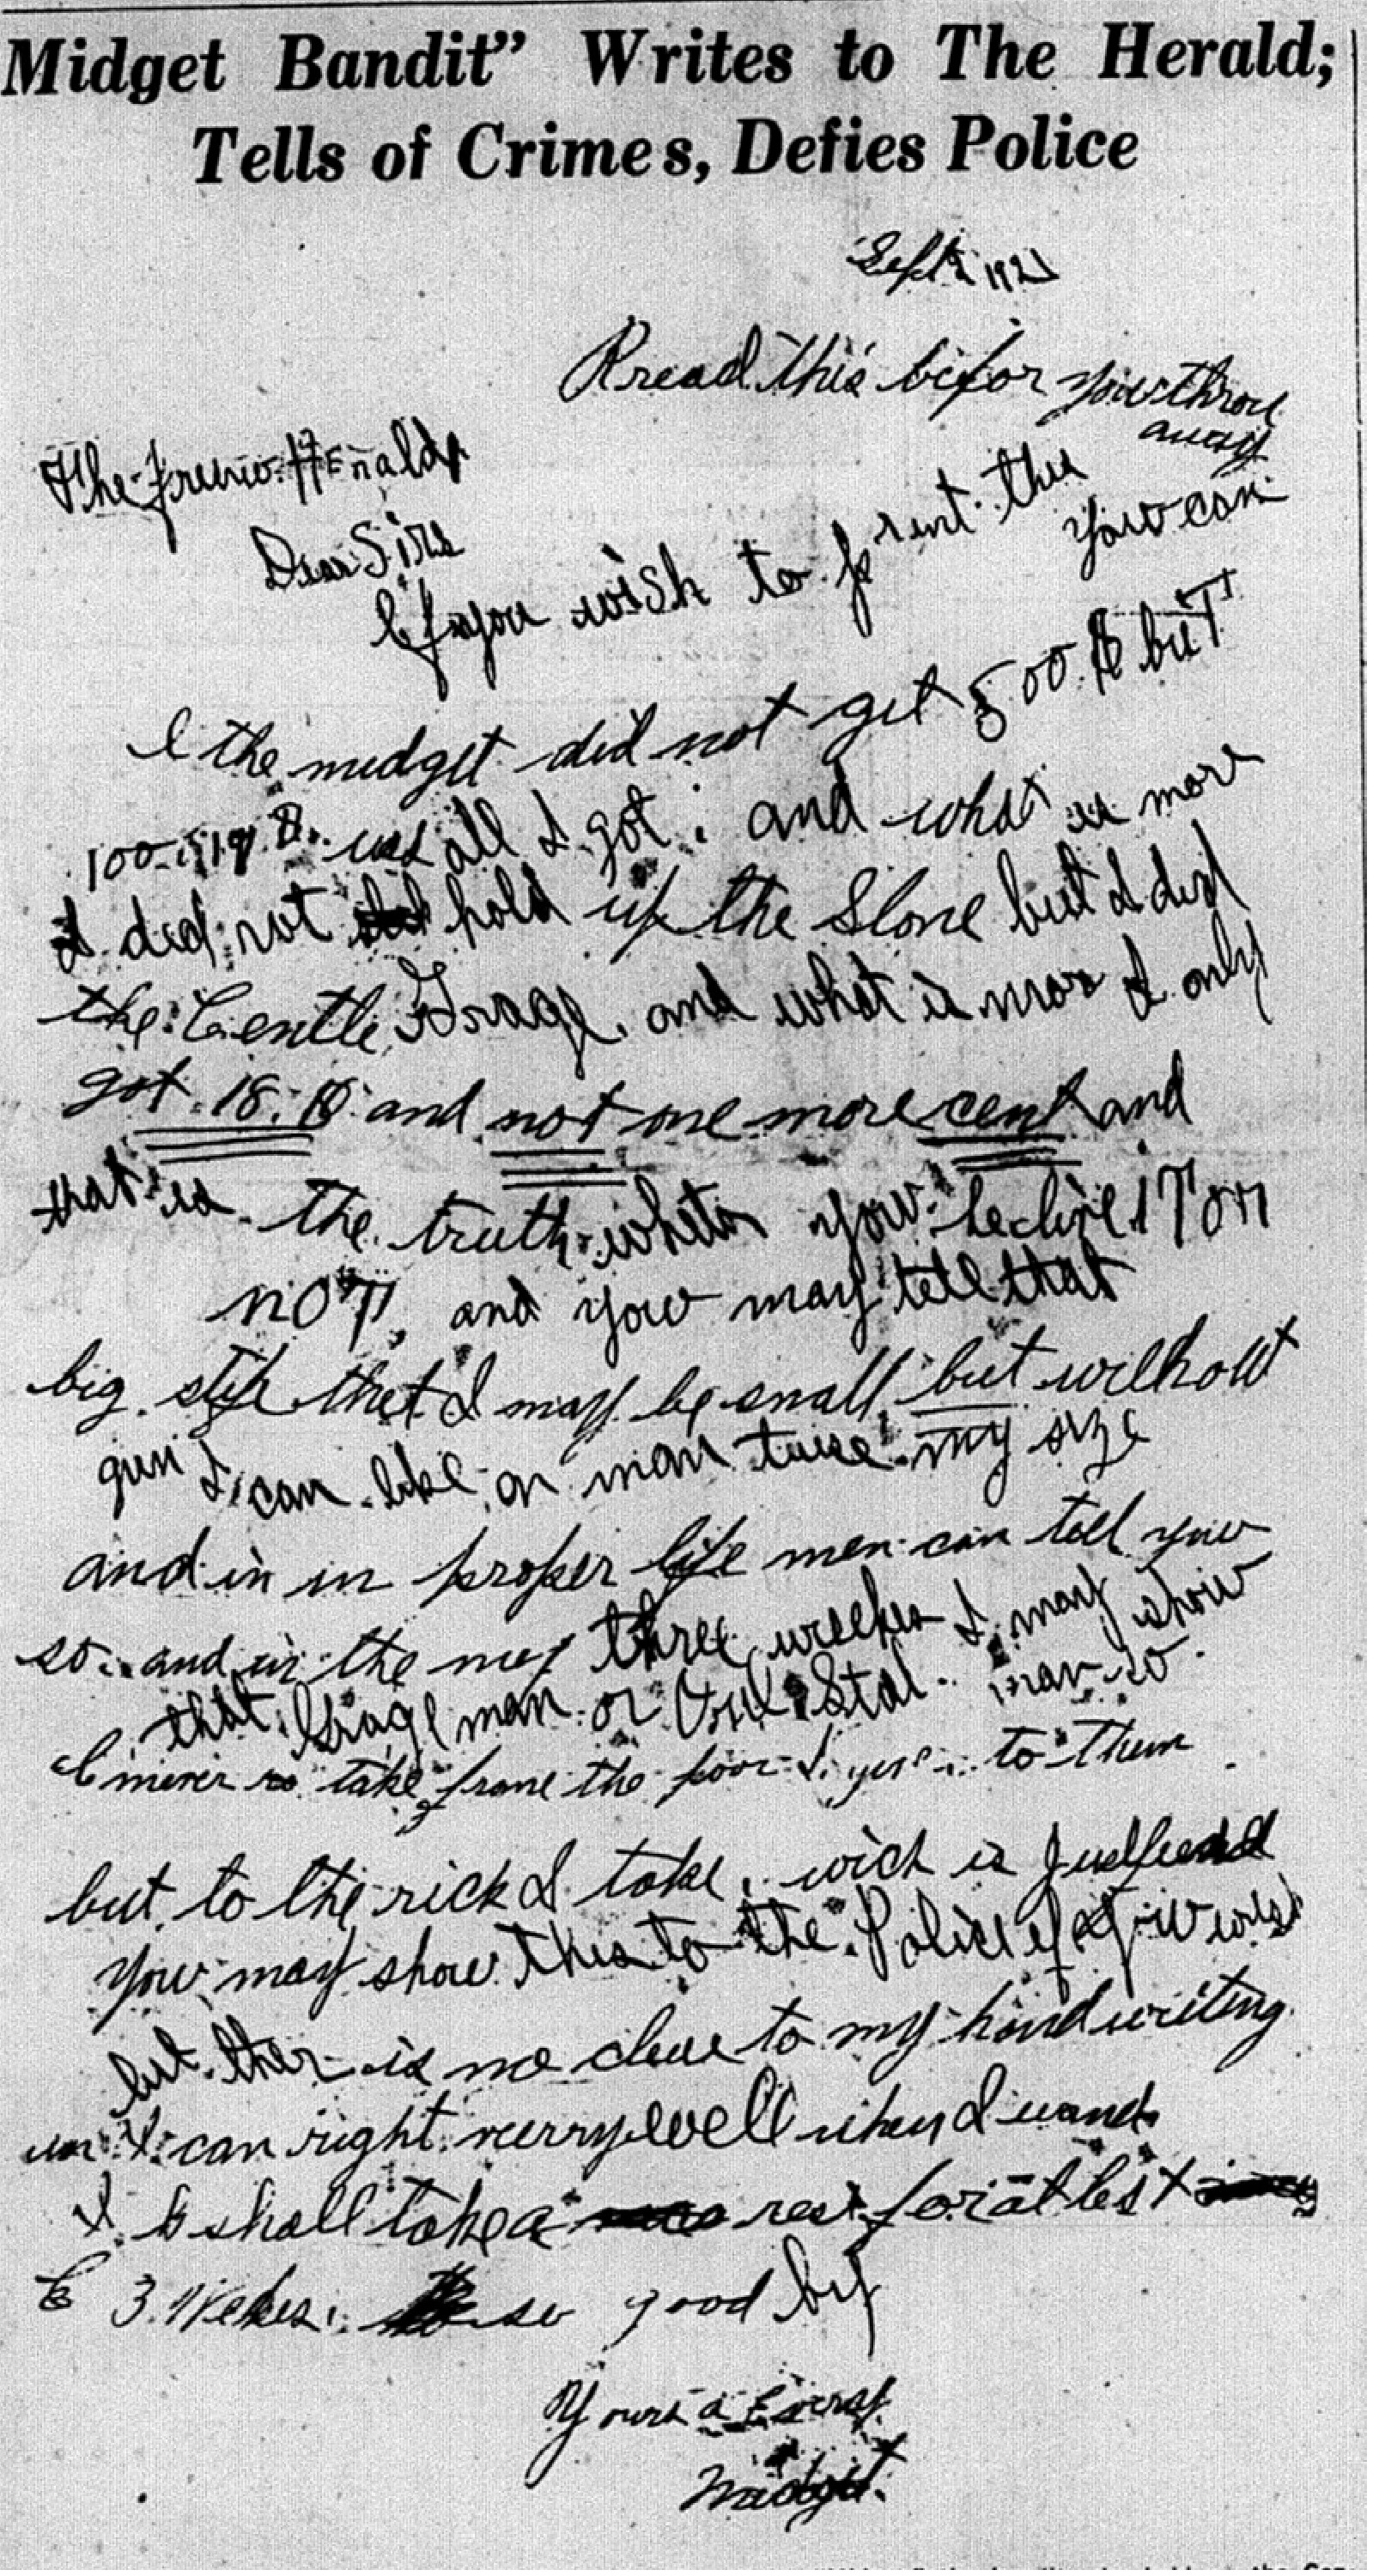 Midget Bandit" Writes to The Herald;
Tells of Crimes, Defies Police
Sept 1921
Rread this befor you throu
away
The Fresno Herald
Dear Sirs
If you wish to prent this
you can
I the midget did not get 500 $ but
100. $ was all I got. and what is more
I did not hold up the Store but I did
the Grage, and what is mor I only
got 18. $ and not one more cent and
that is the truth you or
NOT, and you may tell that
big stif that I may be small, but without
gun I can like an man twice my size
and in in proper life men can tell you
so. and in the three weekes I may show
that Grage man or Stat. man so
I never to take frome the poor I to them
but to the rick I take, wich is
you may show this to the Police if you wish
but ther is no clue to my hand writing
I can right verry well when I wand
I shall take a rest for at lest
3 Wekes. so good by
Yours
Midget.